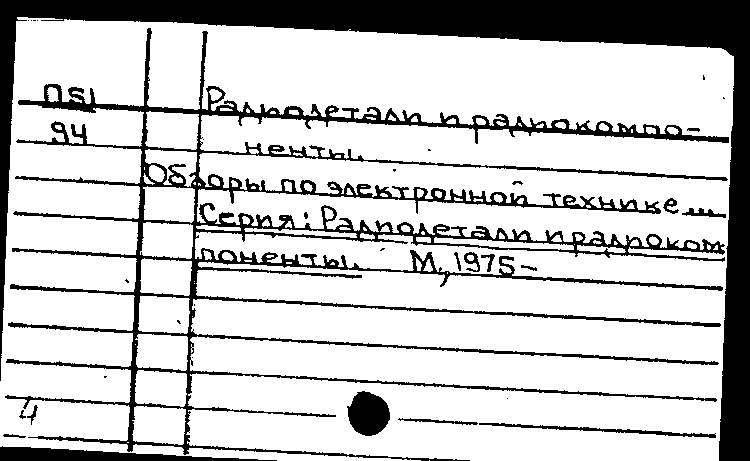 П51 Радиодетали и радиокомпо-
94 ненты.
Обзоры по электронной технике...
Серия: Радиодетали и радиоком
поненты. М., 1975-
4